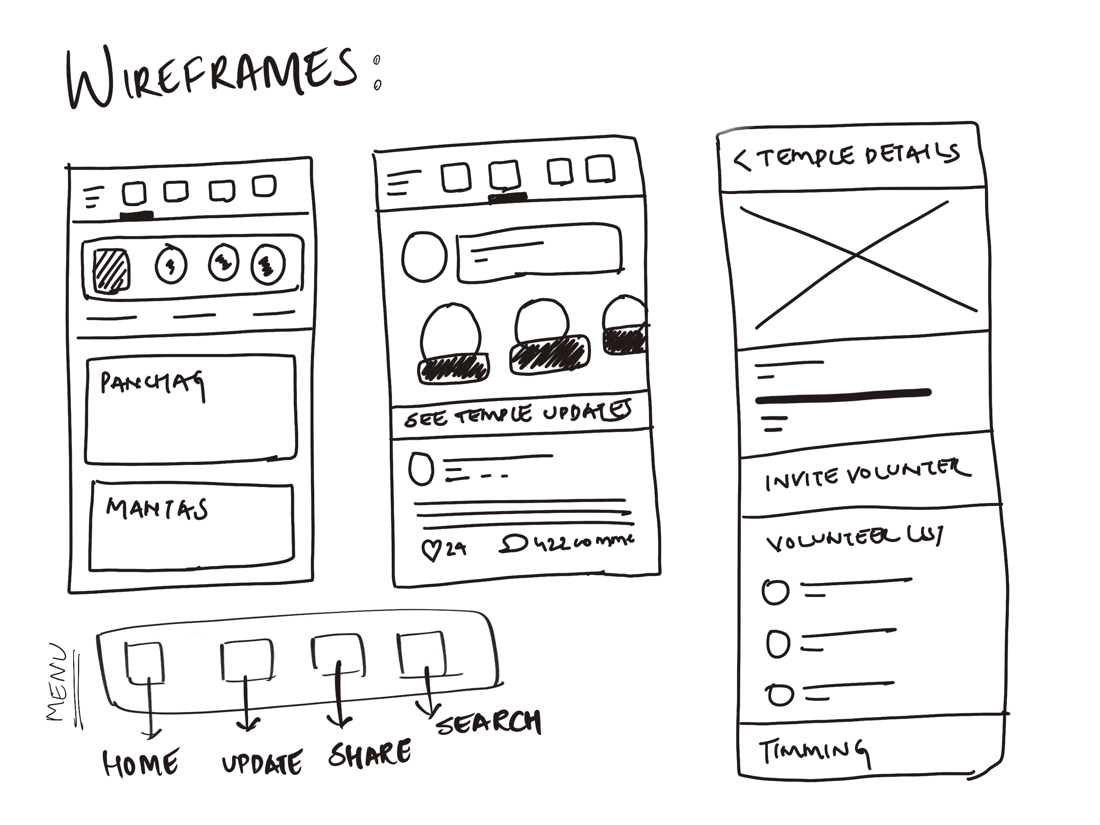 WIREFRAMES:
PANCHAG
MANTAS
SEE TEMPLE UPDATES
24
422 comme
< TEMPLE DETAILS
INVITE VOLUNTER
VOLUNTEER LIST
TIMMING
MENU
HOME
UPDATE
SHARE
SEARCH